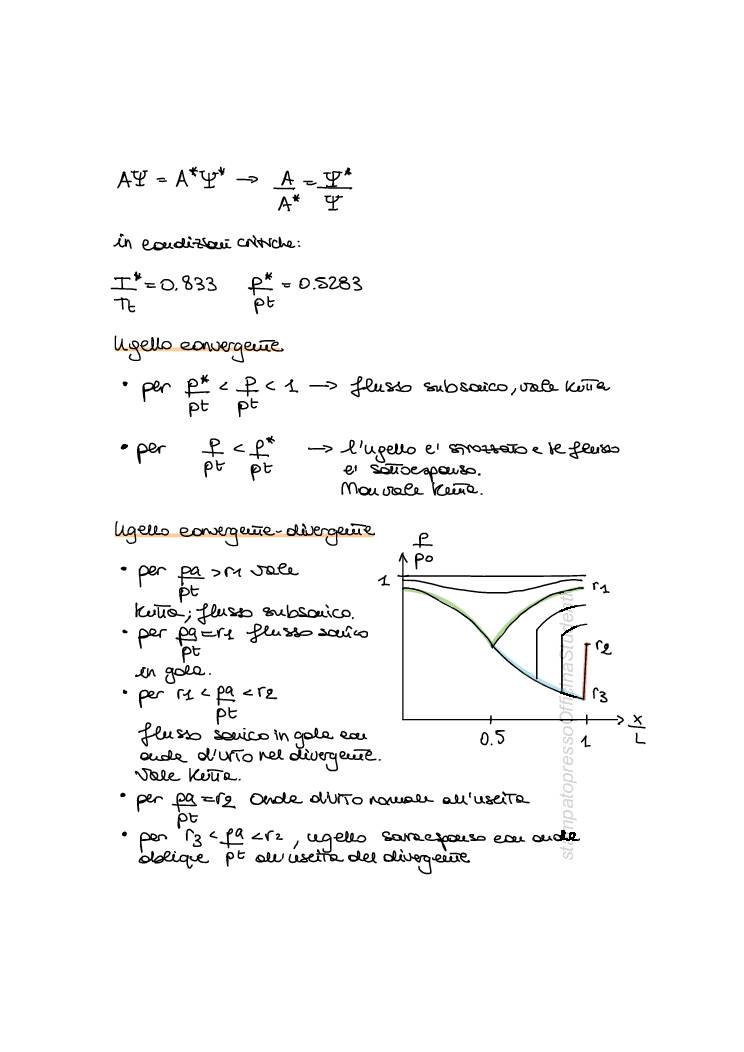 AΨ = A*Ψ* → A/A* = Ψ*/Ψ
in condizioni critiche:
T*/Tt = 0.833 p*/pt = 0.5283
Ugello convergente
• per p*/pt < p/pt < 1 → flusso subsonico, vale Kutta
• per p/pt < p*/pt → l'ugello e' strozzato e le flusso
e' sottoespanso.
Non vale Kutta.
Ugello convergente-divergente
• per pa/pt > r1 vale
Kutta; flusso subsonico.
• per pa/pt = r1 flusso sonico
in gola.
• per r1 < pa/pt < r2
flusso sonico in gola con
onde d'urto nel divergente.
Vale Kutta.
• per pa/pt = r2 Onde d'urto normale all'uscita
• per r3 < pa/pt < r2, ugello sovraespanso con onde
oblique all'uscita del divergente
p/po
1
r1
r2
r3
0.5
1
x/L
stampatopressoOfficinaStudenti